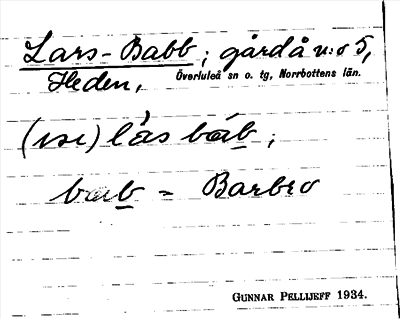 Lars-Babb; gård å n:o 5,
Heden, Överluleå sn o. tg, Norrbottens län.
(ise) lås båb;
bab = Barbro
GUNNAR PELLIJEFF 1934.